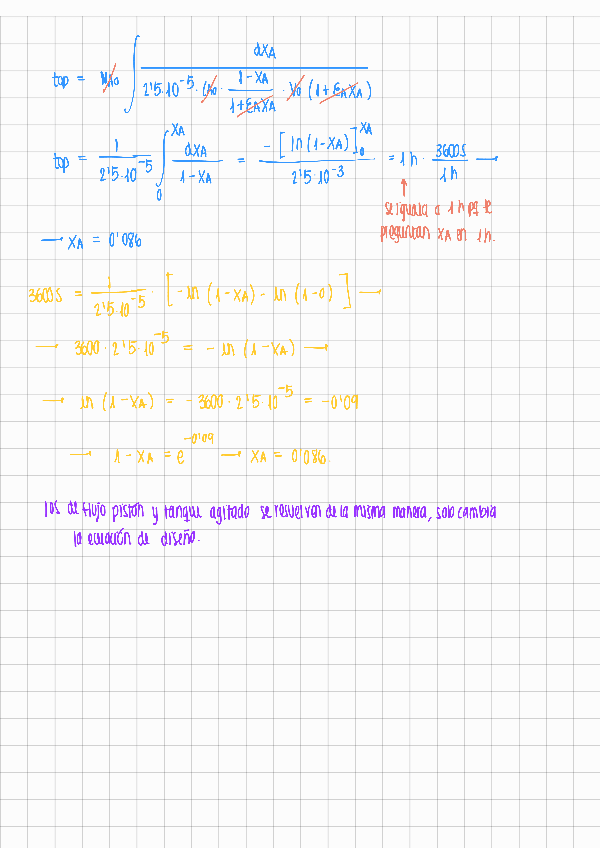 top = NA0 ∫ dXA / (2'5·10^-5 · CA0 · (1-XA)/(1+εAXA) · V0 (1+εAXA))
top = 1/(2'5·10^-5) ∫_0^XA dXA/(1-XA) = -[ln(1-XA)]_0^XA / (2'5·10^-3) = 1h · 3600s/1h →
↑
se iguala a 1h pq te
preguntan XA en 1h.
→ XA = 0'086
3600s = 1/(2'5·10^-5) · [-ln (1-XA) - ln (1-0)] →
→ 3600 · 2'5·10^-5 = -ln (1-XA) →
→ ln (1-XA) = -3600 · 2'5·10^-5 = -0'09
→ 1-XA = e^-0'09 → XA = 0'086
los de flujo pistón y tanque agitado se resuelven de la misma manera, solo cambia
la ecuación de diseño.